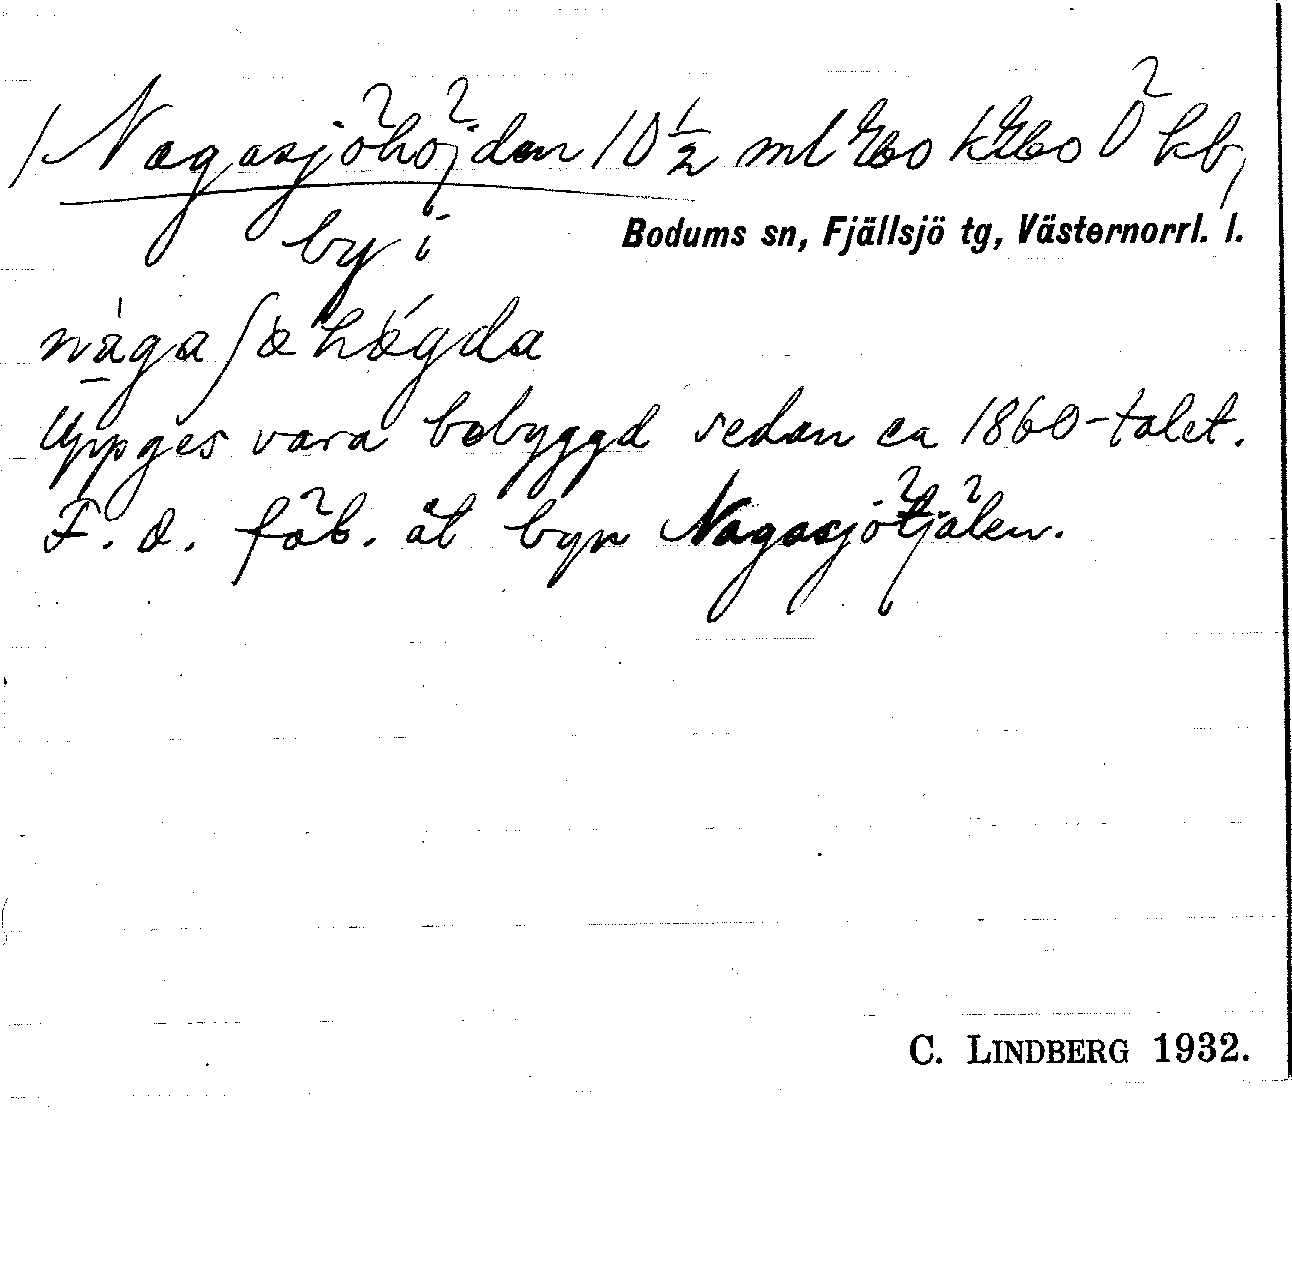 /Nagasjöhöjden 10½ ml Ö kb,
by i Bodums sn, Fjällsjö tg, Västernorrl. l.
någaʃæhǿgda
Uppges vara bebyggd sedan ca 1860-talet.
F. d. fäb. åt byn Nagasjötjälen.
C. LINDBERG 1932.